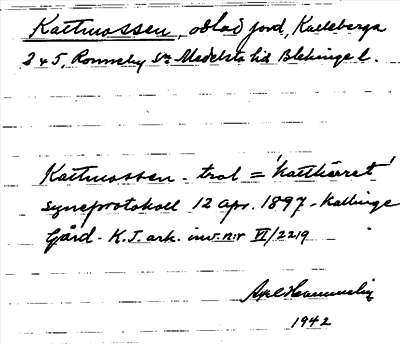 Kattmossen, odlad jord, Karleberga
2 + 5, Ronneby sn Medelsta hd Blekinge l.
Kattmossen - trol = 'Kattkärret'
syneprotokoll 12 apr. 1897 - Kallinge
Gård - K.J. ark. inv.n:r VI/2219
Axel
1942